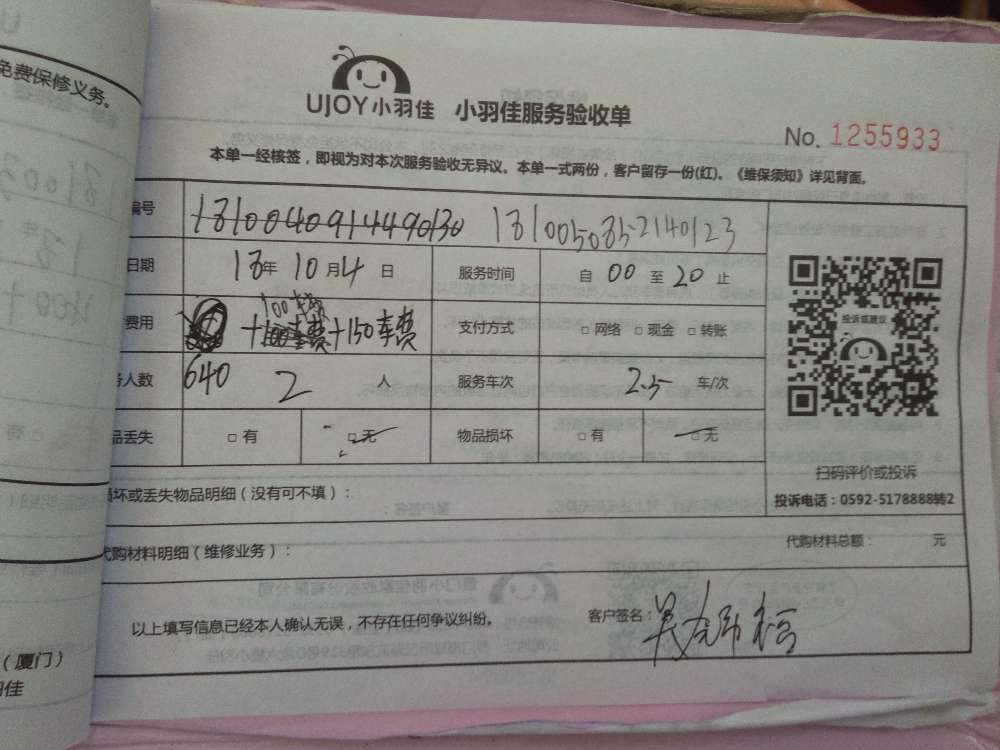 免费保修义务。
UJOY小羽佳 小羽佳服务验收单
No. 1255933
本单一经核签，即视为对本次服务验收无异议。本单一式两份，客户留存一份(红)。《维保须知》详见背面。
编号 1810040914490130 1810050852140123
日期 18年10月4日 服务时间 自00至20止
费用 +100车费+150车费 支付方式 □网络 □现金 □转账
100车费
640
人数 2人 服务车次 2.5车/次
品丢失 □有 □无 物品损坏 □有 □无
投诉或建议
扫码评价或投诉
投诉电话：0592-5178888转2
损坏或丢失物品明细（没有可不填）：
代购材料明细（维修业务）： 代购材料总额： 元
以上填写信息已经本人确认无误，不存在任何争议纠纷。 客户签名：
（厦门）
羽佳